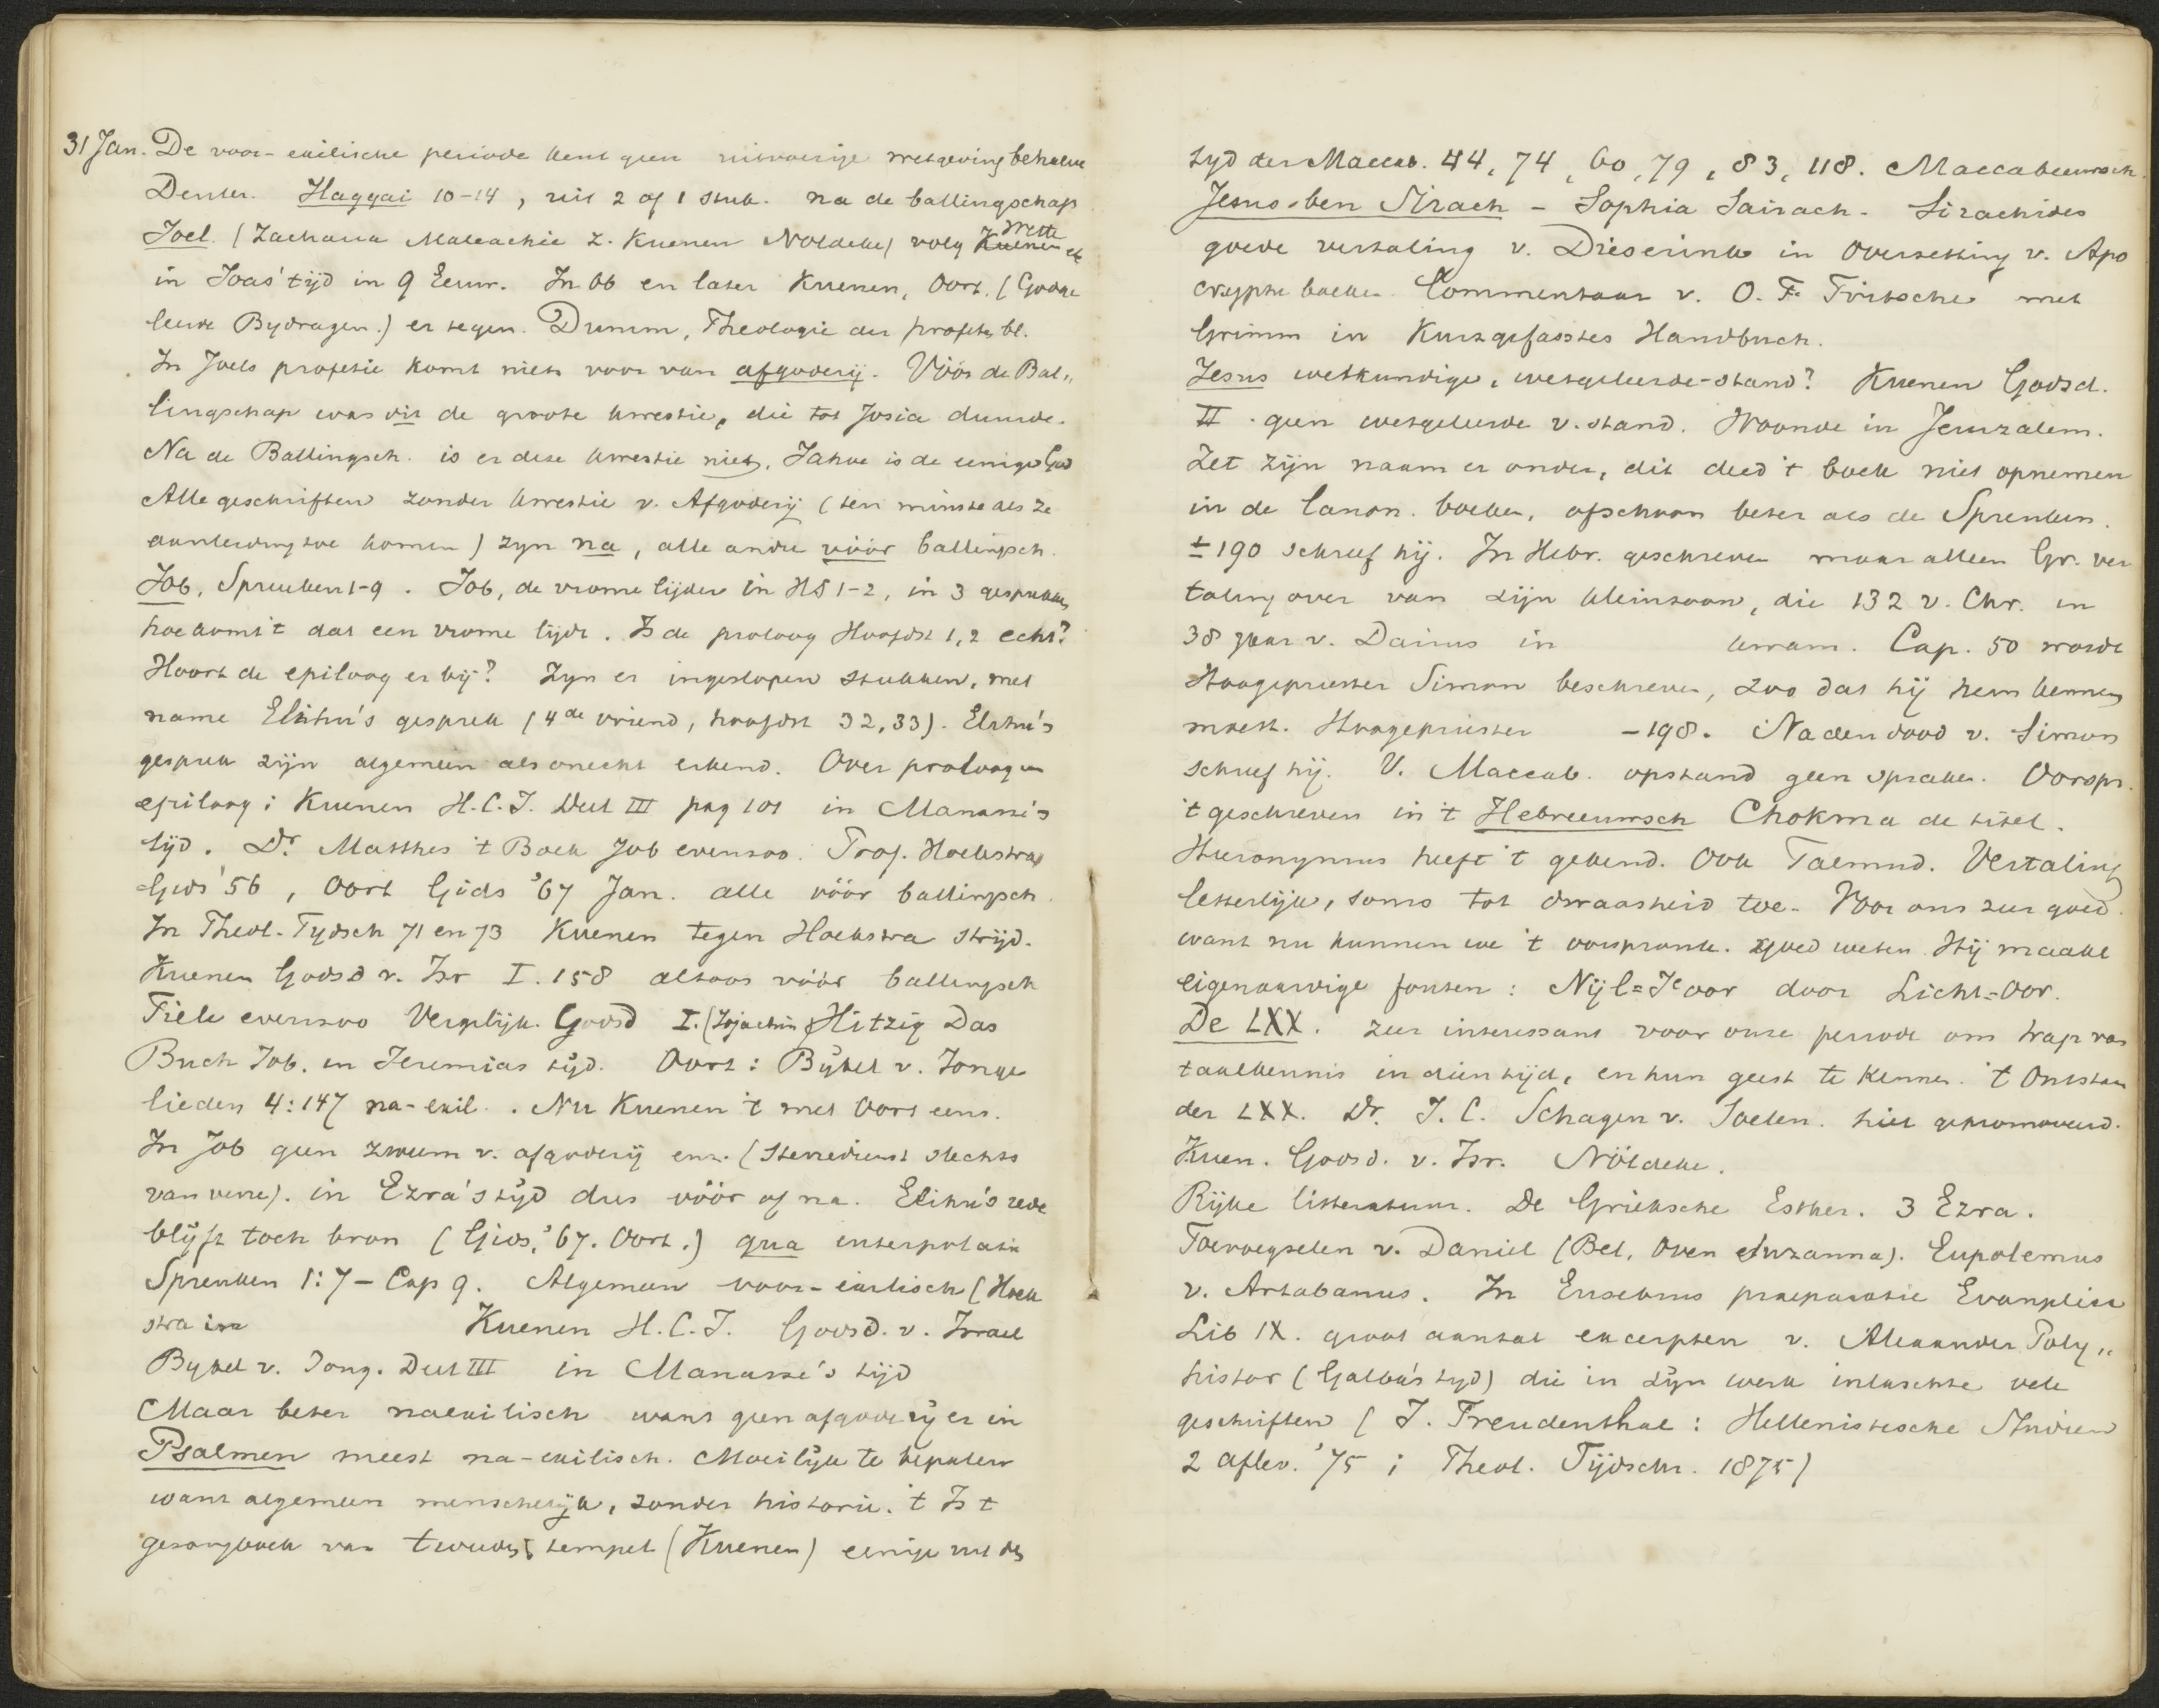 31 Jan. De voor-exilische periode kent geen uitvoerige wetgeving behalve
Deuter. Haggai 10-14, uit 2 of 1 stuk. na de ballingschap
Joel. (Zacharia Maleachie z. Kuenen Nöldeke) volg Kuenen Wette etc
in Joas' tijd in 9 Eeuw. In 66 en later Kuenen, Oort. (Godge
leerde Bydragen.) er tegen. Dumm, Theologie der profeten, bl.
In Joels profetie komt niets voor van afgoderij. Vóór de Bal„
lingschap was dit de groote kwestie, die tot Josia duurde.
Na de Ballingsch. is er deze kwestie niet. Jahve is de eenige God
Alle geschriften zonder kwestie v. Afgoderij (ten minste als ze
aanleiding toe komen) zyn na, alle andre vóór ballingsch.
Job, Spreuken 1-9. Job, de vrome lijder in HS 1-2, in 3 gesprekken
hoe komt 't dat een vrome lijdt. Is de proloog Hoofdst 1,2 echt?
Hoort de epiloog er bij? Zyn er ingeslopen stukken, met
name Elihu's gesprek (4de vriend, hoofdst 32,33). Elihu's
gesprek zijn algemeen als onecht erkend. Over proloog en
epiloog; Kuenen H.C.I. Deel III pag 101 in Manasse's
tijd. Dr. Matthes 't Boek Job evenzoo. Prof. Hoekstra,
Gids '56, Oort Gids '67 Jan. alle vóór ballingsch.
In Theol. Tydsch 71 en 73 Kuenen tegen Hoekstra strijd.
Kuenen Godsd v. Isr I. 158 altoos vóór ballingsch
Tiele evenzoo Vergelijk. Godsd I. (Jojachin) Hitzig Das
Buch Job. in Jeremias tijd. Oort: Bijbel v. Jonge
lieden 4:147 na-exil. . Nu Kuenen 't met Oort eens.
In Job geen zweem v. afgoderij enz. (sterredienst slechts
van verre). in Ezra's tijd dus vóór of na. Elihu's rede
blijft toch bron (Gids, '67. Oort.) qua interpolatie
Spreuken 1:7 – Cap 9. Algemeen voor-exilisch (Hoek
stra in Kuenen H.C.I. Godsd. v. Israel
Bybel v. Jong. Deel III in Manasse's tijd
Maar beter naexilisch want geen afgoderij er in
Psalmen meest na-exilisch. Moeilijk te bepalen
want algemeen menschelijk, zonder historie. 't Is t
gezangboek van tweeden tempel (Kuenen) eenige uit den
tyd der Maccab. 44, 74, 60, 79, 83, 118. Maccabeeuwsch.
Jesus-ben Sirach – Sophia Sairach. Sirachides
goede vertaling v. Dieserinck in Overzetting v. Apo
cryphe boeken. Commentaar v. O. F. Fritsche met
Grimm in Kurzgefasstes Handbuch.
Jesus wetkundige, wetgeleerde-stand? Kuenen Godsd.
II. geen wetgeleerde v. stand. Woonde in Jeruzalem.
Zet zijn naam er onder, dit deed 't boek niet opnemen
in de Canon. boeken, ofschoon beter als de Spreuken.
± 190 schreef hij. In Hebr. geschreven maar alleen Gr. ver
taling over van zijn kleinzoon, die 132 v. Chr. in
38 jaar v. Darius in kwam. Cap. 50 wordt
Hoogepriester Simon beschreven, zoo dat hij hem kennen
moest. Hoogepriester –198. Na den dood v. Simon
schreef hij. V. Maccab. opstand geen sprake. Oorspr.
't geschreven in 't Hebreeuwsch Chokma de titel.
Hieronymus heeft 't gekend. Ook Talmud. Vertaling
letterlijk, soms tot dwaasheid toe. Voor ons zeer goed.
want nu kunnen we 't oorspronk. goed weten. Hij maakt
eigenaardige fouten: Nijl=Jeoor door Licht=Oor.
De LXX. zeer interessant voor onze periode om trap van
taalkennis in dien tijd, en hun geest te kennen. 't Ontstaan
der LXX. Dr. J. C. Schagen v. Soelen. hier gepromoveerd.
Kuen. Godsd. v. Isr. Nöldeke.
Rijke litteratuur. De Grieksche Esther. 3 Ezra.
Toevoegselen v. Daniel (Bel, Oven Suzanna). Eupolemus
v. Artabanus. In Eusebius praeparatie Evangelica
Lib IX. groot aantal excerpten v. Alexander Poly„
histor (Galba's tyd) die in zijn werk inlaschte vele
geschriften (J. Freudenthal: Hellenistische Studien
2 aflev. '75; Theol. Tijdschr. 1875)